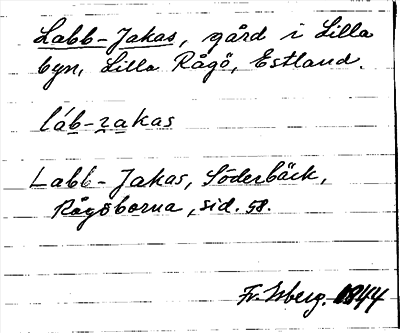 Labb-Jakas, gård i Lilla
byn, Lilla Rågö, Estland.
láb-zakas
Labb-Jakas, Söderbäck,
Rågöborna, sid. 58.
Fr. Isberg. 1944